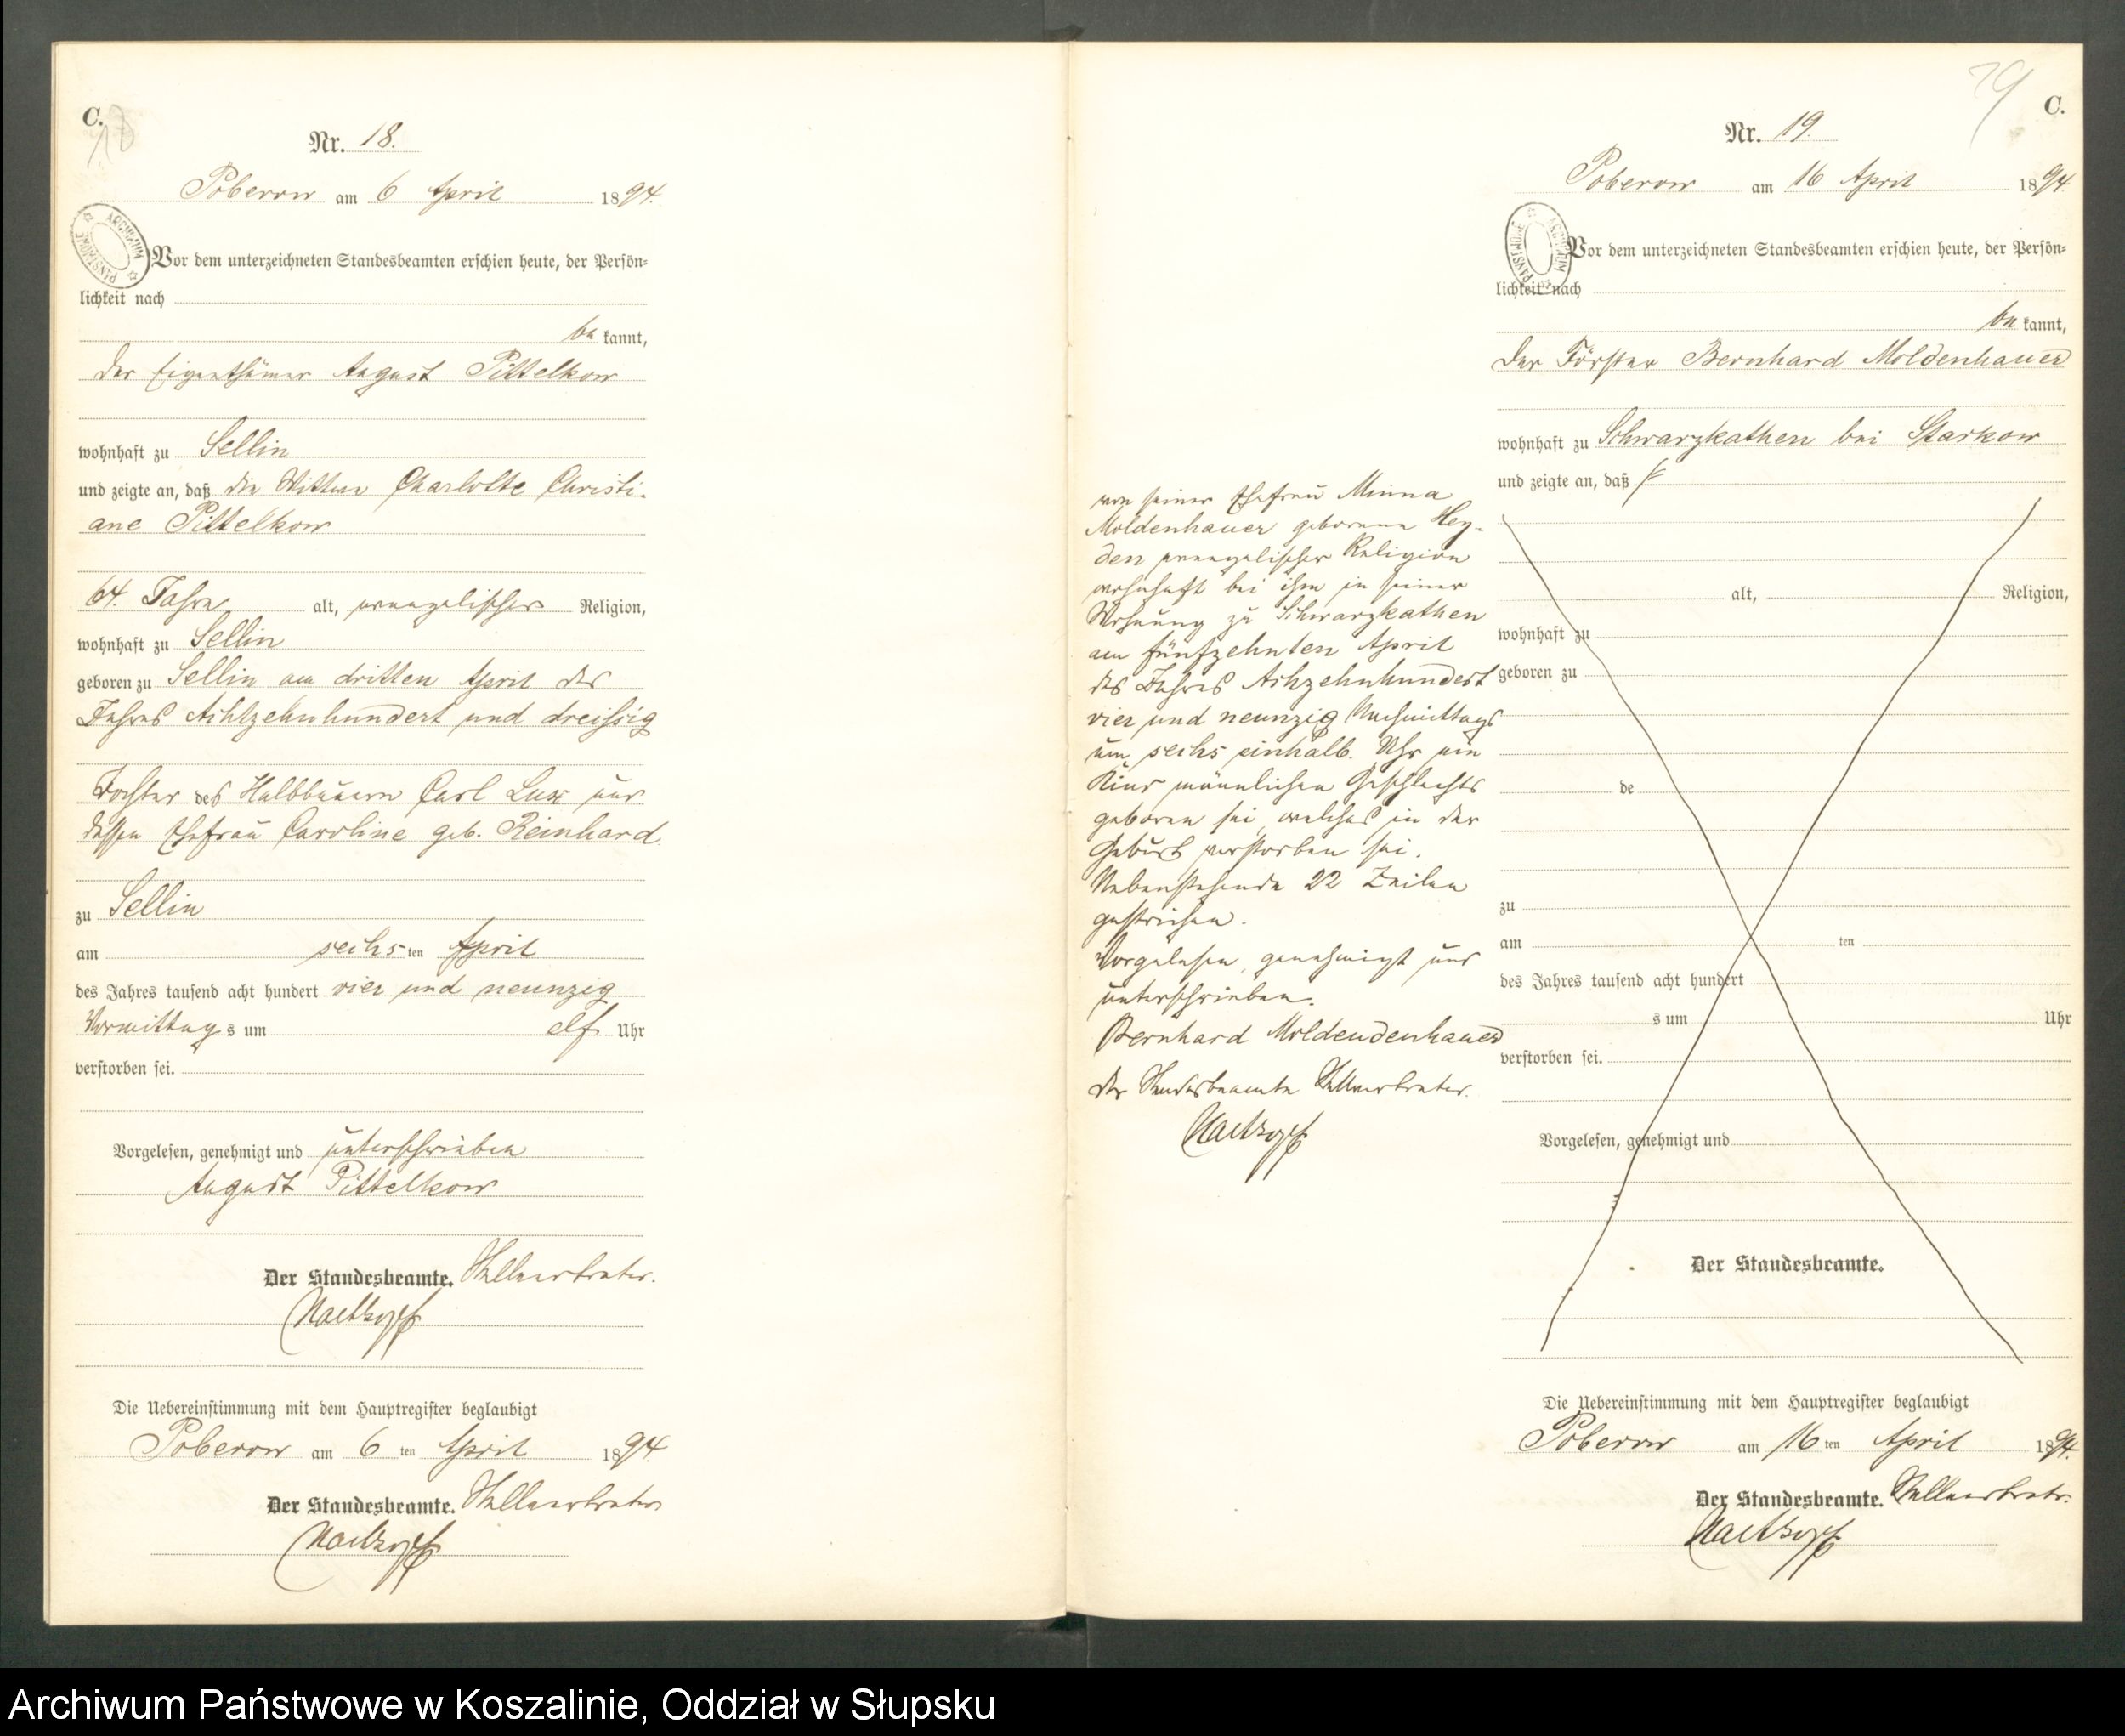 C.
18
Nr. 18.
Poberow am 6 April 1894.
ARCHIWUM PAŃSTWOWE
Vor dem unterzeichneten Standesbeamten erschien heute, der Persön-
lichkeit nach
be kannt,
der Eigenthümer August Pittelkow
wohnhaft zu Sellin
und zeigte an, daß die Wittwe Charlotte Christi-
ane Pittelkow
64. Jahre alt, evangelischer Religion,
wohnhaft zu Sellin
geboren zu Sellin am dritten April des
Jahres Achtzehnhundert und dreißig
Tochter des Halbbauern Carl Lux und
dessen Ehefrau Caroline geb. Reinhard
zu Sellin
am sechsten April
des Jahres tausend acht hundert vier und neunzig
Vormittags um elf Uhr
verstorben sei.
Vorgelesen, genehmigt und unterschrieben
August Pittelkow
Der Standesbeamte. Stellvertreter.
Die Uebereinstimmung mit dem Hauptregister beglaubigt
Poberow am 6 ten April 1894.
Der Standesbeamte. Stellvertreter
19
C.
Nr. 19.
Poberow am 16 April 1894
ARCHIWUM PAŃSTWOWE
Vor dem unterzeichneten Standesbeamten erschien heute, der Persön-
lichkeit nach
be kannt,
der Förster Bernhard Moldenhauer
wohnhaft zu Schwarzkathen bei Starkow
und zeigte an, daß
von seiner Ehefrau Minna
Moldenhauer geborene Hey-
den evangelischer Religion
wohnhaft bei ihm in seiner
Wohnung zu Schwarzkathen
am fünfzehnten April
des Jahres Achzehnhundert
vier und neunzig Nachmittags
um sechs einhalb Uhr ein
Kind männlichen Geschlechts
geboren sei, welches in der
Geburt verstorben sei.
Nebenstehende 22 Zeilen
gestrichen.
Vorgelesen, genehmigt und
unterschrieben.
Bernhard Moldendenhauer
der Standesbeamte Stellvertreter.
alt, Religion,
wohnhaft zu
geboren zu
de
zu
am ten
des Jahres tausend acht hundert
s um Uhr
verstorben sei.
Vorgelesen, genehmigt und
Der Standesbeamte.
Die Uebereinstimmung mit dem Hauptregister beglaubigt
Poberow am 16 ten April 1894.
Der Standesbeamte. Stellvertretr.
Archiwum Państwowe w Koszalinie, Oddział w Słupsku